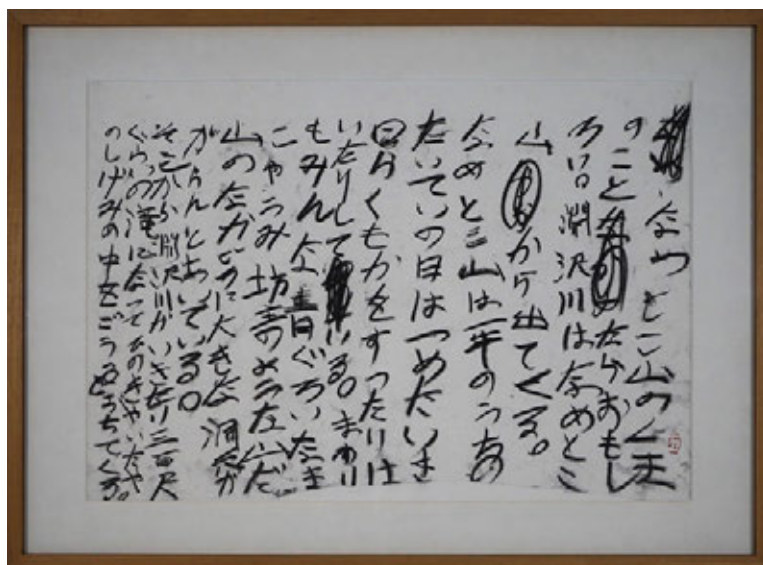 なめとこ山のくま
のことならおもし
ろい。淵沢川はなめとこ
山から出てくる。
なめとこ山は一年のうちの
たいていの日はつめたいき
りかくもかをすったりは
いたりしている。まわり
もみんな青ぐろいなま
こやうみ坊主のような山だ
山のなかごろに大きな洞穴が
がらんとあいている。
そこから淵沢川がいきなり三百尺
ぐらいの滝になってひのきやいたや
のしげみの中をごうとおちてくる。